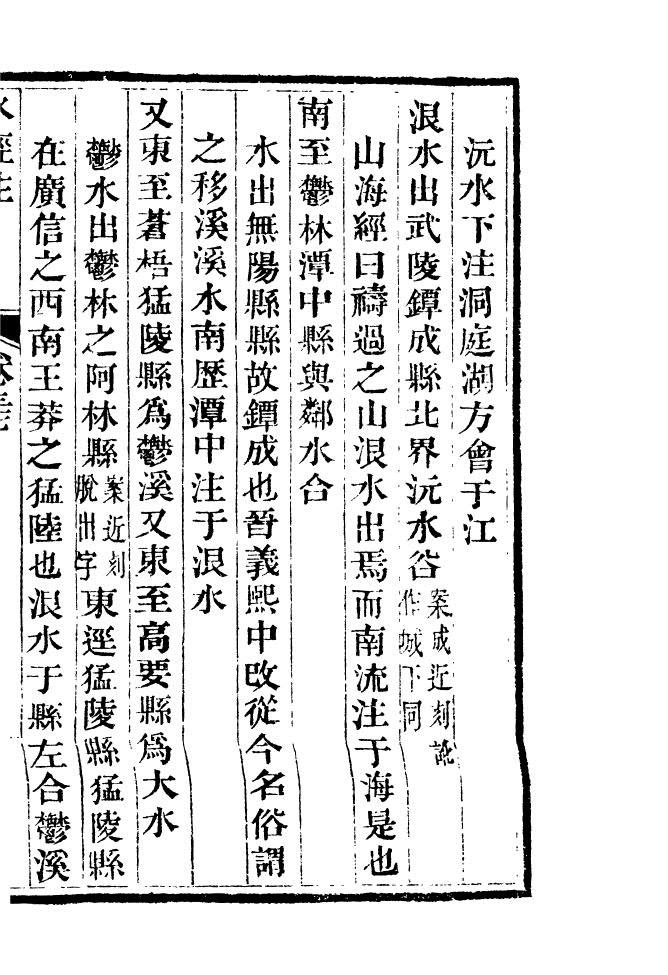 沅水下注洞庭湖方會于江
浪水出武陵鐔成縣北界沅水谷案成近刻訛作城下同
山海經曰禱過之山浪水出焉而南流注于海是也
南至鬱林潭中縣與鄰水合
水出無陽縣縣故鐔成也晉義熙中改從今名俗謂
之移溪溪水南歷潭中注于浪水
又東至蒼梧猛陵縣爲鬱溪又東至高要縣爲大水
鬱水出鬱林之阿林縣案近刻脫出字東逕猛陵縣猛陵縣
在廣信之西南王莽之猛陸也浪水于縣左合鬱溪
水經注